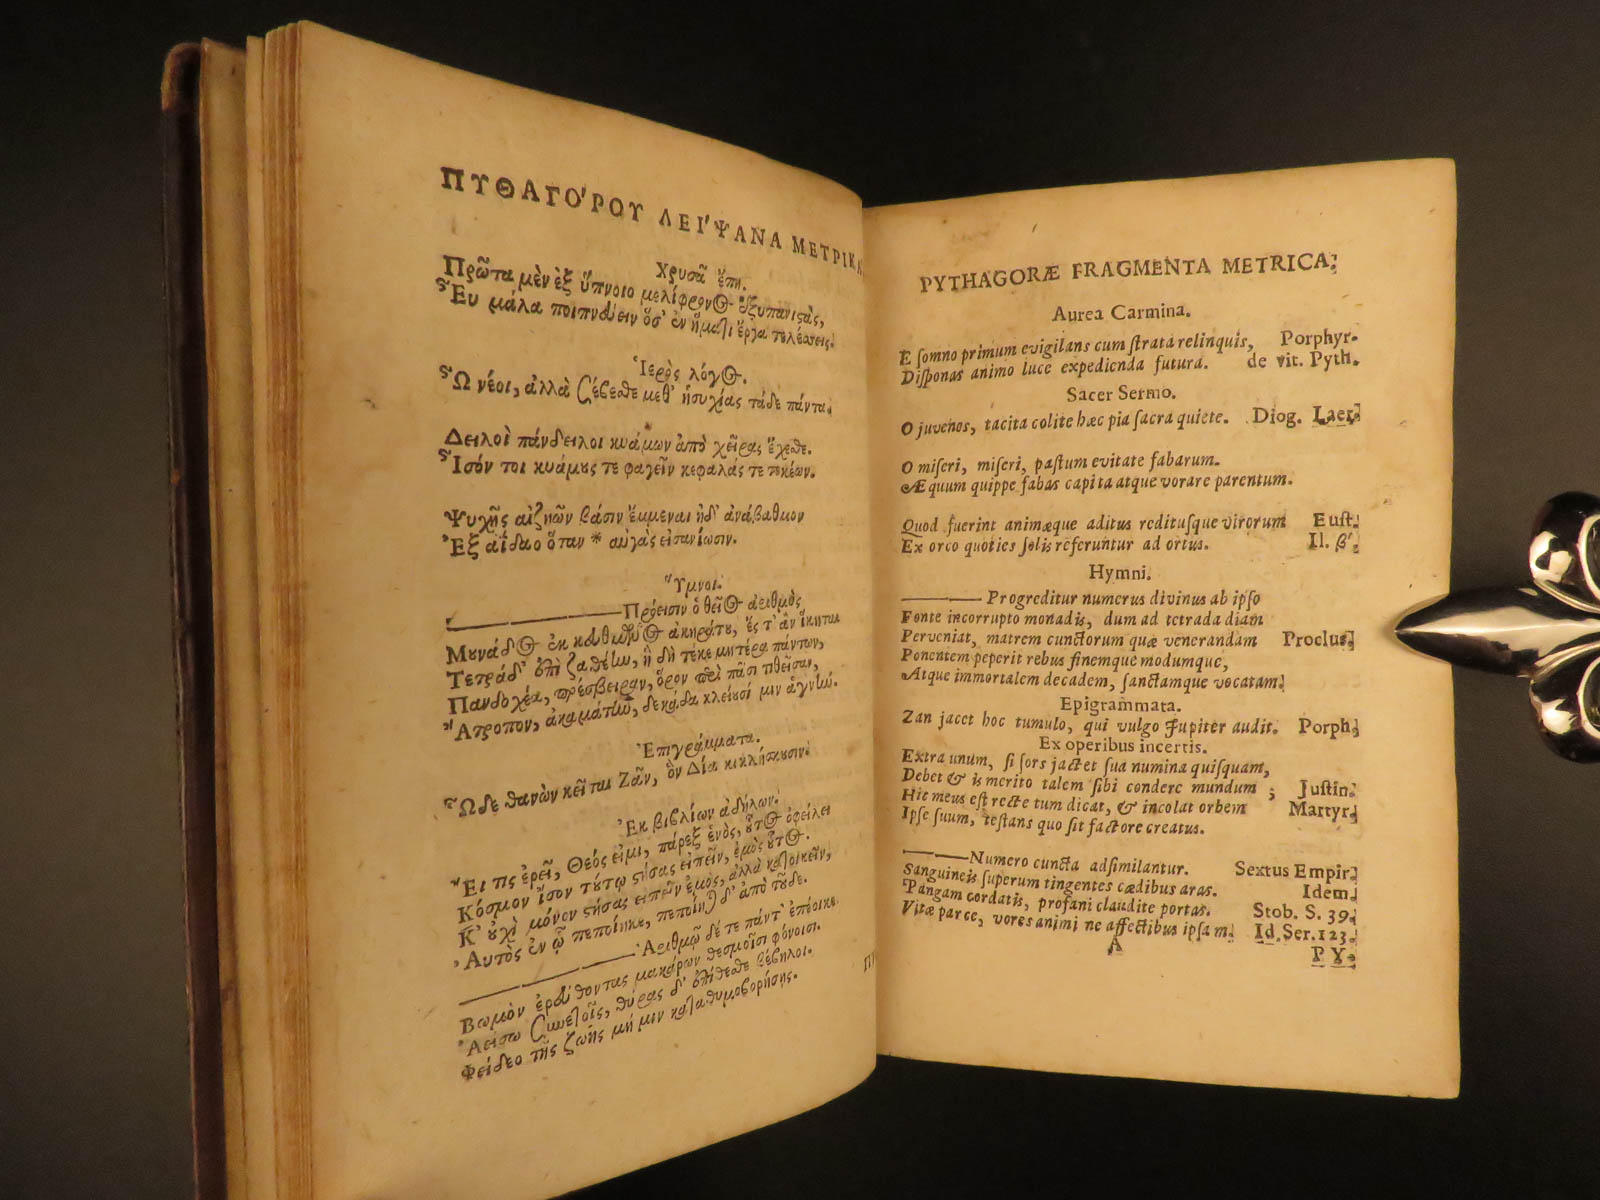 ΠΥΘΑΓΟ'ΡΟΥ ΛΕΙ'ΨΑΝΑ ΜΕΤΡΙΚΑ
Χρυσᾶ ἔπη.
Πρῶτα μὲν ἐξ ὕπνοιο μελίφρονος ἐξυπανιςὰς,
Ἐυ μάλα ποιπνύειν ὅσ' ἐν ἤματι ἔργα τελέσεις.
Ἱερὸς λόγος.
Ὦ νέοι, ἀλλὰ σέβεσθε μεθ' ἡσυχίας τάδε πάντα.
Δειλοὶ πάνδειλοι κυάμων ἀπὸ χεῖρας ἔχεσθε.
Ἶσόν τοι κυάμους τε φαγεῖν κεφαλάς τε τοκέων.
Ψυχῆς αἰζηῶν βάσιν ἔμμεναι ἠδ' ἀνάβαθμον
Ἐξ ἀΐδαο ὅταν * αὐγὰς εἰσανίωσιν.
Ὕμνοι.
Πρόεισιν ὁ θεῖος ἀριθμὸς
Μουνάδος ἐκ κευθμῶνος ἀκηράτου, ἔς τ' ἂν ἵκηται
Τετράδ' ἐπὶ ζαθέην, ἣ δὴ τέκε μητέρα πάντων,
Πανδοχέα, πρέσβειραν, ὅρον περὶ πᾶσι τιθεῖσαν,
Ἄτροπον, ἀκαμάτην, δεκάδα κλείουσί μιν ἁγνήν.
Ἐπιγράμματα.
Ὧδε θανὼν κεῖται Ζᾶν, ὃν Δία κικλήσκουσιν.
Ἐκ βιβλίων ἀδήλων.
Ἔι τις ἐρεῖ, Θεός εἰμι, πάρεξ ἑνὸς, οὗτος ὀφείλει
Κόσμον ἶσον τούτῳ ςήσας εἰπεῖν, ἐμὸς οὗτος.
Κ' οὐχὶ μόνον ςήσας εἰπεῖν ἐμὸς, ἀλλὰ κατοικεῖν,
Αυτὸς ἐν ᾧ πεποίηκε, πεποίηται δ' ἀπὸ τοῦδε.
Ἀριθμῷ δέ τε πάντ' ἐπέοικε.
Βωμὸν ἐρεύθοντας μακάρων θεσμοῖσι φόνοισι.
Ἀείσω ξυνετοῖς, θύρας δ' ἐπίθεσθε βέβηλοι.
Φείδεο τῆς ζωῆς μή μιν καταθυμοβορήσῃς.
PYTHAGORÆ FRAGMENTA METRICA.
Aurea Carmina.
E somno primum evigilans cum strata relinquis, Porphyr.
Disponas animo luce expedienda futura. de vit. Pyth.
Sacer Sermo.
O juvenes, tacita colite hæc pia sacra quiete. Diog. Laer.
O miseri, miseri, pastum evitate fabarum.
Æquum quippe fabas capita atque vorare parentum.
Quod fuerint animæque aditus reditusque virorum Eust.
Ex orco quoties solis referuntur ad ortus. Il. β'.
Hymni.
Progreditur numerus divinus ab ipso
Fonte incorrupto monadis, dum ad tetrada diam
Perveniat, matrem cunctorum quæ venerandam Proclus.
Ponentem peperit rebus finemque modumque,
Atque immortalem decadem, sanctamque vocatam.
Epigrammata.
Zan jacet hoc tumulo, qui vulgo Jupiter audit. Porph.
Ex operibus incertis.
Extra unum, si sors jactet sua numina quisquam,
Debet & is merito talem sibi condere mundum ; Justin.
Hic meus est recte tum dicat, & incolat orbem Martyr.
Ipse suum, testans quo sit factore creatus.
Numero cuncta adsimilantur. Sextus Empir.
Sanguineis superum tingentes cædibus aras. Idem.
Pangam cordatis, profani claudite portas. Stob. S. 39.
Vitæ parce, vores animi ne affectibus ipsam. Id. Ser. 123.
A
PY-